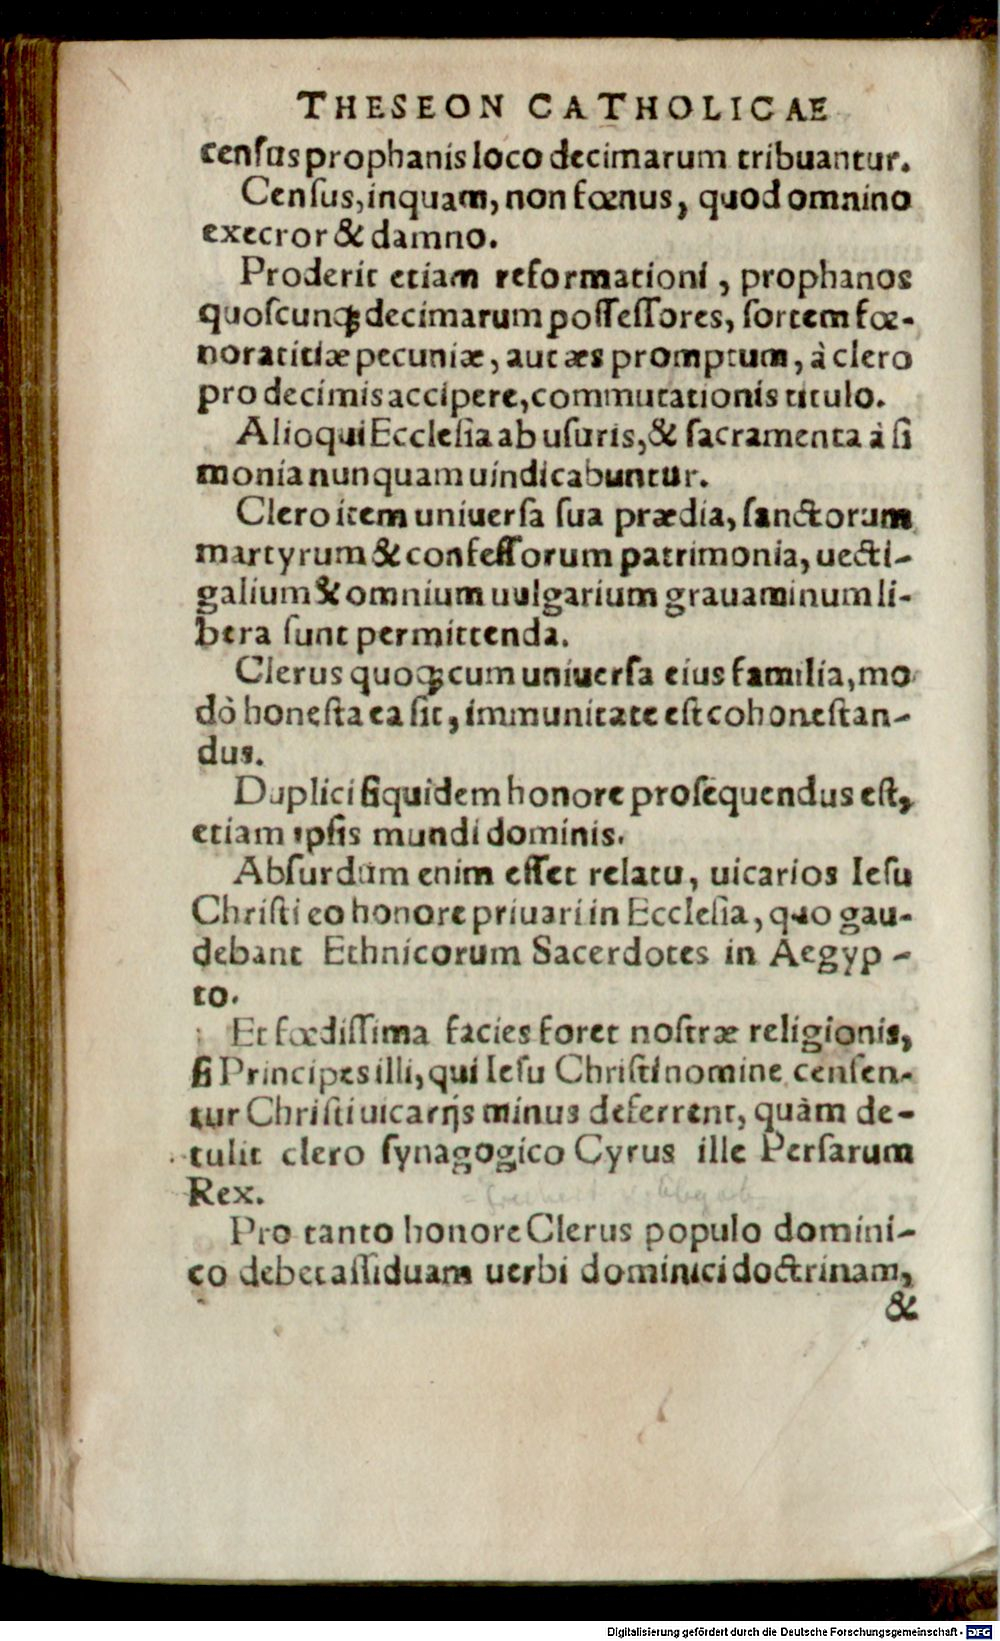 THESEON CATHOLICAE
cenſus prophanis loco decimarum tribuantur.
Cenſus, inquam, non fœnus, quod omnino
execror & damno.
Proderit etiam reformationi, prophanos
quoſcunqꝫ decimarum poſſeſſores, ſortem fœ-
noratitiæ pecuniæ, aut æs promptum, à clero
pro decimis accipere, commutationis titulo.
Alioqui Eccleſia ab uſuris, & ſacramenta à ſi
monia nunquam uindicabuntur.
Clero item uniuerſa ſua prædia, ſanctorum
martyrum & confeſſorum patrimonia, uecti-
galium & omnium uulgarium grauaminum li-
bera ſunt permittenda.
Clerus quoqꝫ cum uniuerſa eius familia, mo
dò honeſta ea ſit, immunitate eſt cohoneſtan-
dus.
Duplici ſiquidem honore proſequendus eſt,
etiam ipſis mundi dominis.
Abſurdum enim eſſet relatu, uicarios Ieſu
Chriſti eo honore priuari in Eccleſia, quo gau-
debant Ethnicorum Sacerdotes in Aegyp-
to.
Et fœdiſſima facies foret noſtræ religionis,
ſi Principes illi, qui Ieſu Chriſti nomine cenſen-
tur Chriſti uicarijs minus deferrent, quàm de-
tulit clero ſynagogico Cyrus ille Perſarum
Rex.
Pro tanto honore Clerus populo domini-
co debet aſſiduam uerbi dominici doctrinam,
&
Digitalisierung gefördert durch die Deutsche Forschungsgemeinschaft - DFG